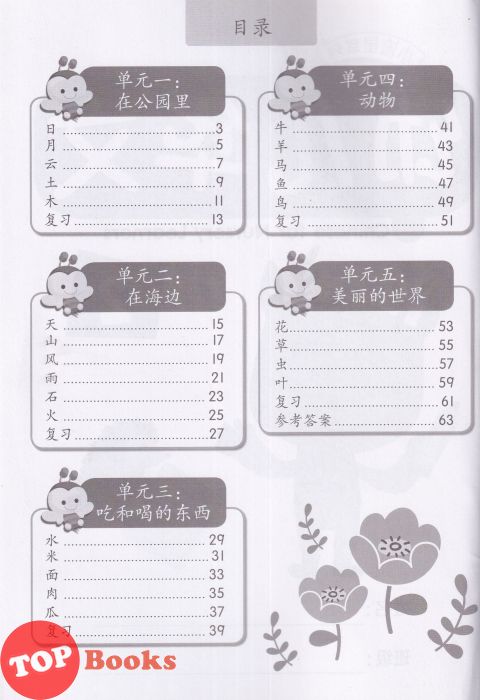 目录
单元一：
在公园里
日 3
月 5
云 7
土 9
木 11
复习 13
单元二：
在海边
天 15
山 17
风 19
雨 21
石 23
火 25
复习 27
单元三：
吃和喝的东西
水 29
米 31
面 33
肉 35
瓜 37
复习 39
单元四：
动物
牛 41
羊 43
马 45
鱼 47
鸟 49
复习 51
单元五：
美丽的世界
花 53
草 55
虫 57
叶 59
复习 61
参考答案 63
TOP Books